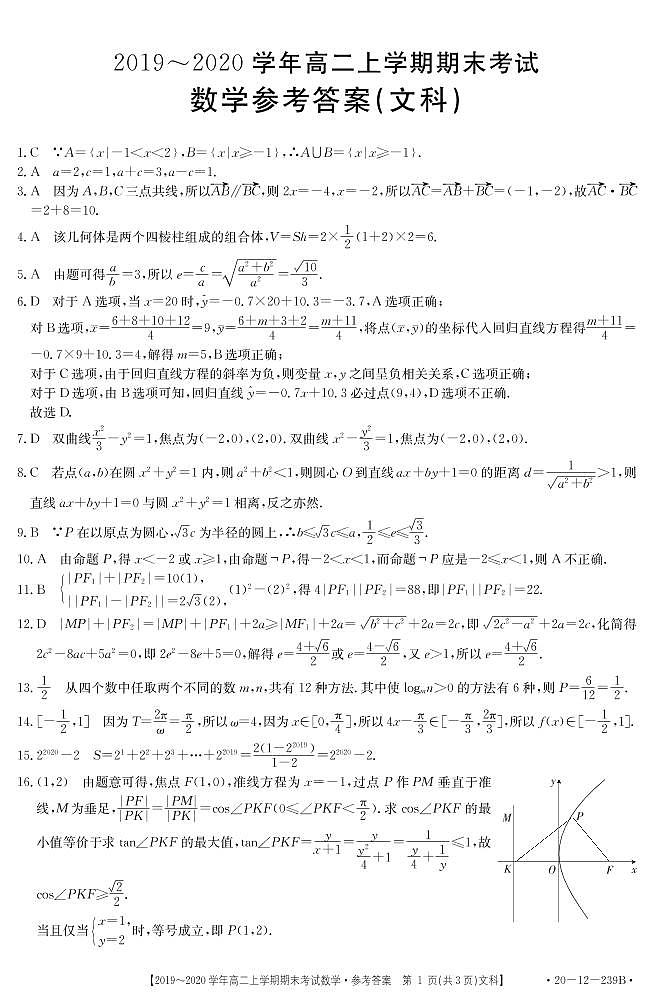 2019～2020 学年高二上学期期末考试
数学参考答案(文科)
1. C ∵A={x|-1<x<2},B={x|x≥-1},∴A∪B={x|x≥-1}.
2. A a=2,c=1,a+c=3,a-c=1.
3. A 因为 A,B,C 三点共线,所以$\overrightarrow{AB}$∥$\overrightarrow{BC}$,则 2x=-4,x=-2,所以$\overrightarrow{AC}$=$\overrightarrow{AB}$+$\overrightarrow{BC}$=(-1,-2),故$\overrightarrow{AC}$·$\overrightarrow{BC}$
=2+8=10.
4. A 该几何体是两个四棱柱组成的组合体,V=Sh=2×$\frac{1}{2}$(1+2)×2=6.
5. A 由题可得$\frac{a}{b}$=3,所以 e=$\frac{c}{a}$=$\sqrt{\frac{a^2+b^2}{a^2}}$=$\frac{\sqrt{10}}{3}$.
6. D 对于 A 选项,当 x=20 时,$\hat{y}$=-0.7×20+10.3=-3.7,A 选项正确;
对 B 选项,$\bar{x}$=$\frac{6+8+10+12}{4}$=9,$\bar{y}$=$\frac{6+m+3+2}{4}$=$\frac{m+11}{4}$,将点($\bar{x}$,$\bar{y}$)的坐标代入回归直线方程得$\frac{m+11}{4}$=
-0.7×9+10.3=4,解得 m=5,B 选项正确;
对于 C 选项,由于回归直线方程的斜率为负,则变量 x,y 之间呈负相关关系,C 选项正确;
对于 D 选项,由 B 选项可知,回归直线 $\hat{y}$=-0.7x+10.3 必过点(9,4),D 选项不正确.
故选 D.
7. D 双曲线$\frac{x^2}{3}$-y²=1,焦点为(-2,0),(2,0).双曲线 x²-$\frac{y^2}{3}$=1,焦点为(-2,0),(2,0).
8. C 若点(a,b)在圆 x²+y²=1 内,则 a²+b²<1,则圆心 O 到直线 ax+by+1=0 的距离 d=$\frac{1}{\sqrt{a^2+b^2}}$>1,则
直线 ax+by+1=0 与圆 x²+y²=1 相离,反之亦然.
9. B ∵P 在以原点为圆心,$\sqrt{3}$c 为半径的圆上,∴b≤$\sqrt{3}$c≤a,$\frac{1}{2}$≤e≤$\frac{\sqrt{3}}{3}$.
10. A 由命题 P,得 x<-2 或 x≥1,由命题¬P,得-2<x<1,而命题¬P 应是-2≤x<1,则 A 不正确.
11. B $\begin{cases}|PF_1|+|PF_2|=10(1),\\||PF_1|-|PF_2||=2\sqrt{3}(2),\end{cases}$(1)²-(2)²,得 4|PF₁||PF₂|=88,即|PF₁||PF₂|=22.
12. D |MP|+|PF₂|=|MP|+|PF₁|+2a≥|MF₁|+2a=$\sqrt{b^2+c^2}$+2a=2c,即$\sqrt{2c^2-a^2}$+2a=2c,化简得
2c²-8ac+5a²=0,即 2e²-8e+5=0,解得 e=$\frac{4+\sqrt{6}}{2}$或 e=$\frac{4-\sqrt{6}}{2}$,又 e>1,所以 e=$\frac{4+\sqrt{6}}{2}$.
13. $\frac{1}{2}$ 从四个数中任取两个不同的数 m,n,共有 12 种方法.其中使 logₘn>0 的方法有 6 种,则 P=$\frac{6}{12}$=$\frac{1}{2}$.
14. [-$\frac{1}{2}$,1] 因为 T=$\frac{2π}{ω}$=$\frac{π}{2}$,所以 ω=4,因为 x∈[0,$\frac{π}{4}$],所以 4x-$\frac{π}{3}$∈[-$\frac{π}{3}$,$\frac{2π}{3}$],所以 f(x)∈[-$\frac{1}{2}$,1].
15. 2²⁰²⁰-2 S=2¹+2²+2³+…+2²⁰¹⁹=$\frac{2(1-2^{2019})}{1-2}$=2²⁰²⁰-2.
16. (1,2) 由题意可得,焦点 F(1,0),准线方程为 x=-1,过点 P 作 PM 垂直于准
线,M 为垂足,$\frac{|PF|}{|PK|}$=$\frac{|PM|}{|PK|}$=cos∠PKF(0≤∠PKF<$\frac{π}{2}$).求 cos∠PKF 的最
小值等价于求 tan∠PKF 的最大值,tan∠PKF=$\frac{y}{x+1}$=$\frac{y}{\frac{y^2}{4}+1}$=$\frac{1}{\frac{y}{4}+\frac{1}{y}}$≤1,故
cos∠PKF≥$\frac{\sqrt{2}}{2}$.
当且仅当$\begin{cases}x=1,\\y=2\end{cases}$时,等号成立,即 P(1,2).
y
M
P
K
O
F
x
【2019～2020 学年高二上学期期末考试数学·参考答案 第 1 页(共 3 页)文科】
·20-12-239B·